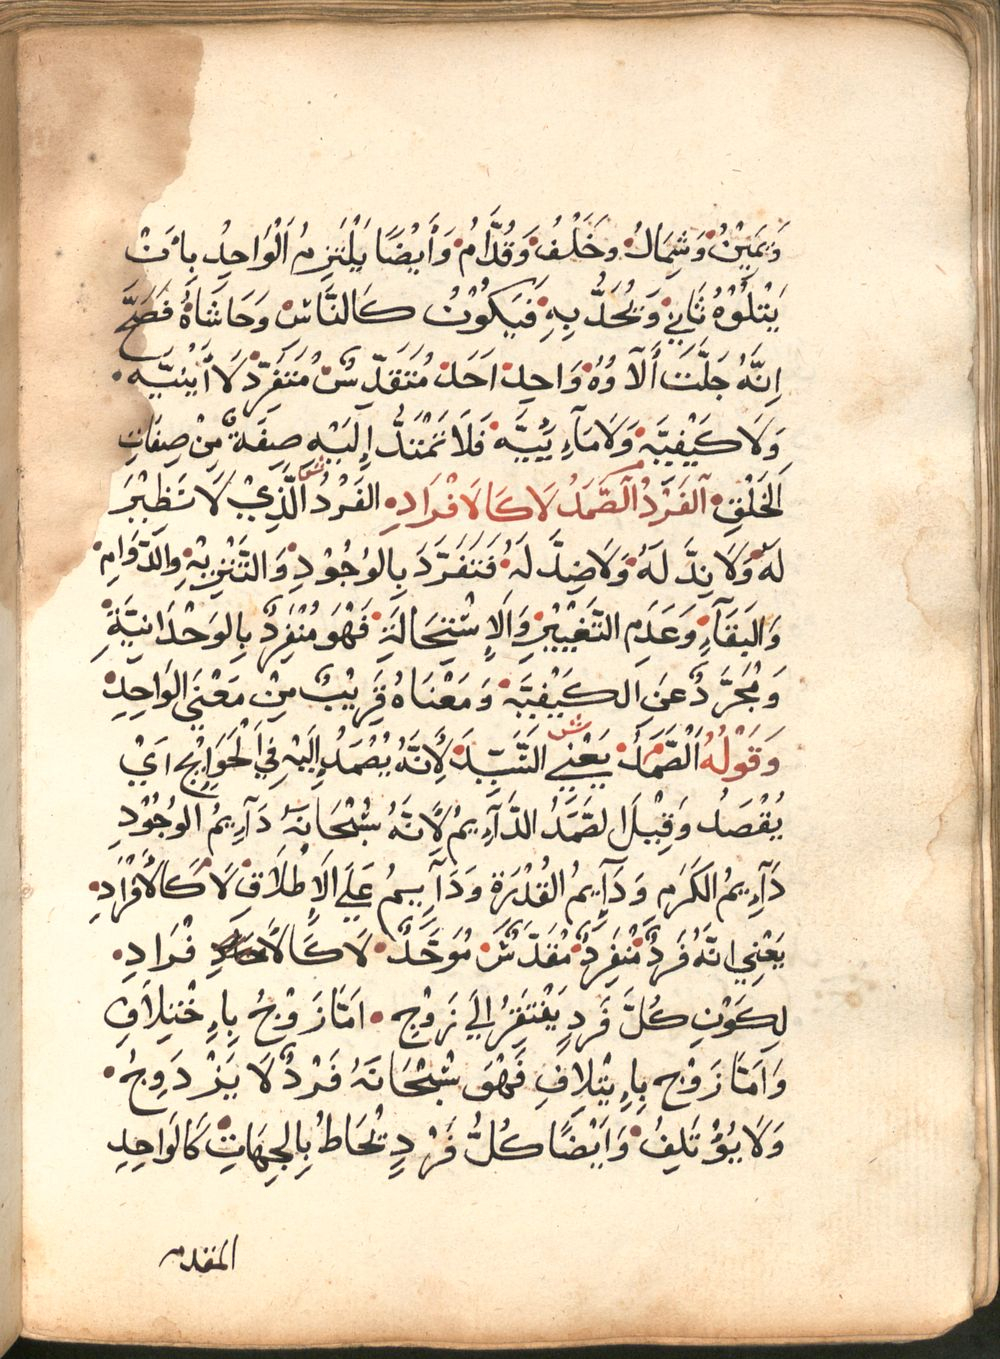 وَيَمِيْنٌ وَشِمَالٌ وخَلْفٌ وَقُدَّامٌ وَأَيْضًا يَلْتَزِمُ اَلْوَاحِدُ بِاَنْ
يَتْلُوْهُ ثَانِيْ وَيُحَدُّ بِهِ فَيَكُوْنُ كَالنَّاسِ وَحَاشَاهُ فَصَحَّ
اِنَّهُ جَلَّتْ أَلَآوُهُ وَاحِدٌ اَحَدٌ مُتَقَدِّسٌ مُتَفَرِّدٌ لَا أَيْنِيَّه
وَلَا كَيْفِيَّه وَلَا مَآءِيِيَّه فَلَا تَمْتَدُّ إِلَيْهِ صِفَةٌ مِنْ صِفَاتِ
الخَلْقِ اَلفَرْدُ اَلصَّمَدُ لَا كَالَافْرَادِ الفَرْدُ الَّذِيْ لَا نَظِيْرَ
لَهُ وَلَا نِدَّ لَهُ وَلَا ضِدَّ لَهُ فَتَفَرَّدَ بِالوُجُوْدِ وَالتَّنْزِيْهِ وَالدَّوَامِ
وَالبَقَآءِ وَعَدَمِ التَّغْيِيْرِ وَالَإِسْتِحَالَةِ فَهْوَ مُنْفَرِدٌ بِالوَحْدَانِيَّةِ
وَمُجَرَّدٌ عَنِ الكَيْفِيَّه وَمَعْنَاهُ قَرِيْبٌ مِنْ مَعْنَى الوَاحِدِ
وَقَوْلُهُ اَلْصَّمَدُ يَعْنِي السَّيِّدَ لِأَنَّهُ يُصْمَدُ اِلَيْهِ فِي اَلْحَوَايِجِ اَيْ
يُقْصَدُ وَقِيْلَ الصَّمَدُ الدَّآءِيمُ لِأَنَّهُ سُبْحَانَهُ دَآءِيمُ الوُجُوْدِ
دَآءِيمُ الكَرَمِ وَدَآءِيمُ القُدْرَة وَدَآءِيمُ عَلَى الَإِطْلَاقِ لَا كَالَأَفْرَادِ
يَعْنِي انَّهُ فَرْدٌ مُنْفَرِدٌ مُقَدَّسٌ مُوَحَّدٌ لَا كَالَأَ فْرَادِ
لِكَوْنِ كُلَّ فَردٍ يَفْتَقِرُ اِلَي زَوْجٍ اَمَّا زَوْجٌ بِاِخْتِلَافِ
وَاَمَّا زَوْج بِاِيْتِلَافِ فَهْوَ سُبْحَانَهُ فَرْدٌ لَا يَزْدَوِجُ
وَلَا يُؤْتَلِفُ وَاَيْضًا كُلُّ فَرْدٍ يُحَاطُ بِالجِهَاتِ كَالوَاحِدِ
المقدم